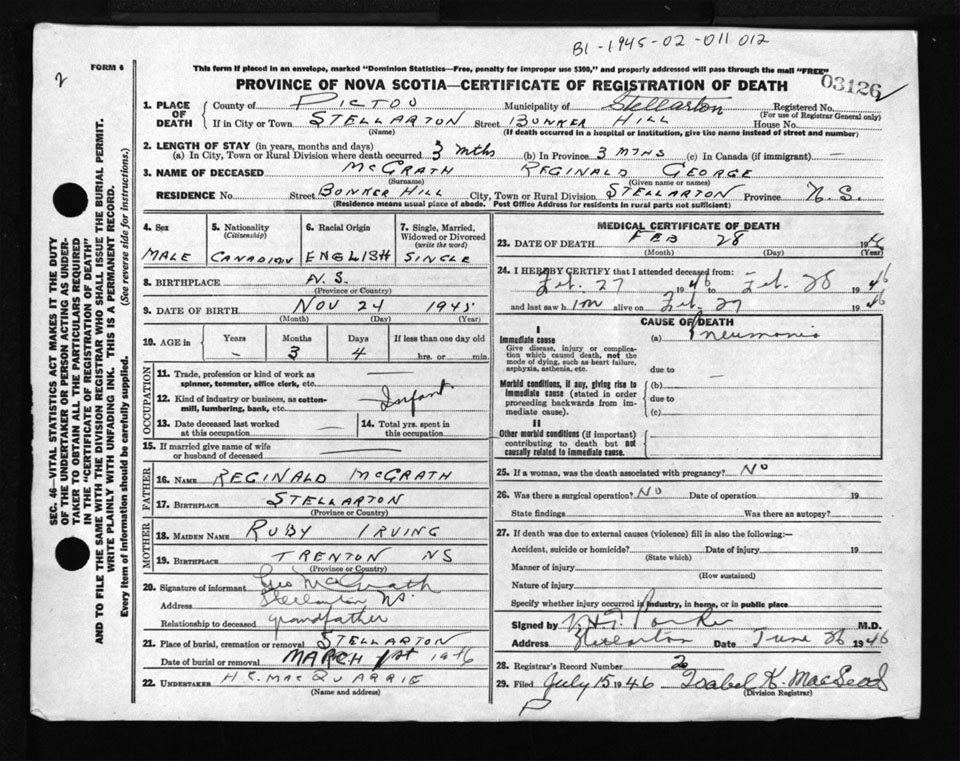 B1-1945-02-011 012
2
FORM 6
This form if placed in an envelope, marked "Dominion Statistics—Free, penalty for improper use $300," and properly addressed will pass through the mail "FREE"
PROVINCE OF NOVA SCOTIA—CERTIFICATE OF REGISTRATION OF DEATH
03126
1. PLACE OF DEATH
County of PICTOU Municipality of Stellarton Registered No.
(For use of Registrar General only)
If in City or Town STELLARTON Street BUNKER HILL House No.
(Name) (If death occurred in a hospital or institution, give the name instead of street and number)
2. LENGTH OF STAY (in years, months and days)
(a) In City, Town or Rural Division where death occurred 3 mths (b) In Province 3 MTHS (c) In Canada (if immigrant) —
3. NAME OF DECEASED McGRATH REGINALD GEORGE
(Surname) (Given name or names)
RESIDENCE No. Street BONKER HILL City, Town or Rural Division STELLARTON Province N.S.
(Residence means usual place of abode. Post Office Address for residents in rural parts not sufficient)
4. Sex 5. Nationality (Citizenship) 6. Racial Origin 7. Single, Married, Widowed or Divorced (write the word)
MALE CANADIAN ENGLISH SINGLE
8. BIRTHPLACE N.S.
(Province or Country)
9. DATE OF BIRTH NOV 24 1945
(Month) (Day) (Year)
10. AGE in Years Months Days If less than one day old
– 3 4 hrs. or min.
OCCUPATION
11. Trade, profession or kind of work as spinner, teamster, office clerk, etc. —
12. Kind of industry or business, as cotton-mill, lumbering, bank, etc. Infant
13. Date deceased last worked at this occupation — 14. Total yrs. spent in this occupation —
15. If married give name of wife or husband of deceased —
FATHER
16. NAME REGINALD McGRATH
17. BIRTHPLACE STELLARTON
(Province or Country)
MOTHER
18. MAIDEN NAME RUBY IRVING
19. BIRTHPLACE TRENTON NS
(Province or Country)
20. Signature of informant Geo McGrath
Address Stellarton NS.
Relationship to deceased grandfather
21. Place of burial, cremation or removal STELLARTON
Date of burial or removal MARCH 1st 1946
22. UNDERTAKER H C. MACQUARRIE
(Name and address)
MEDICAL CERTIFICATE OF DEATH
23. DATE OF DEATH FEB 28 1946
(Month) (Day) (Year)
24. I HEREBY CERTIFY that I attended deceased from:
Feb. 27 1946 to Feb. 28 1946
and last saw him alive on Feb 27 1946
CAUSE OF DEATH
I
Immediate cause (a) Pneumonia
Give disease, injury or complication which caused death, not the mode of dying, such as heart failure, asphyxia, asthenia, etc.
due to —
Morbid conditions, if any, giving rise to immediate cause (stated in order proceeding backwards from immediate cause).
(b)
due to
(c)
II
Other morbid conditions (if important) contributing to death but not causally related to immediate cause.
25. If a woman, was the death associated with pregnancy? No
26. Was there a surgical operation? No Date of operation 19
State findings Was there an autopsy?
27. If death was due to external causes (violence) fill in also the following:—
Accident, suicide or homicide? Date of injury 19
(State which)
Manner of injury
(How sustained)
Nature of injury
Specify whether injury occurred in industry, in home, or in public place
Signed by Parker M.D.
Address Stellarton Date June 26 1946
28. Registrar's Record Number 2
29. Filed July 15 1946 Isabel K. MacLeod
(Division Registrar)
P
SEC. 46—VITAL STATISTICS ACT MAKES IT THE DUTY
OF THE UNDERTAKER OR PERSON ACTING AS UNDER-
TAKER TO OBTAIN ALL THE PARTICULARS REQUIRED
IN THE "CERTIFICATE OF REGISTRATION OF DEATH"
AND TO FILE THE SAME WITH THE DIVISION REGISTRAR WHO SHALL ISSUE THE BURIAL PERMIT.
WRITE PLAINLY WITH UNFADING INK. THIS IS A PERMANENT RECORD.
Every item of information should be carefully supplied. (See reverse side for instructions.)